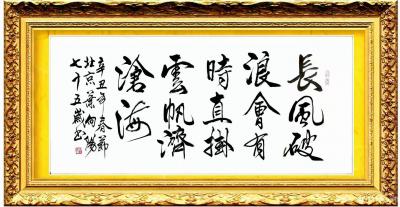 長風破
浪會有
時直掛
雲帆濟
滄海
辛丑年春節
北京葉向陽
七十五歲書